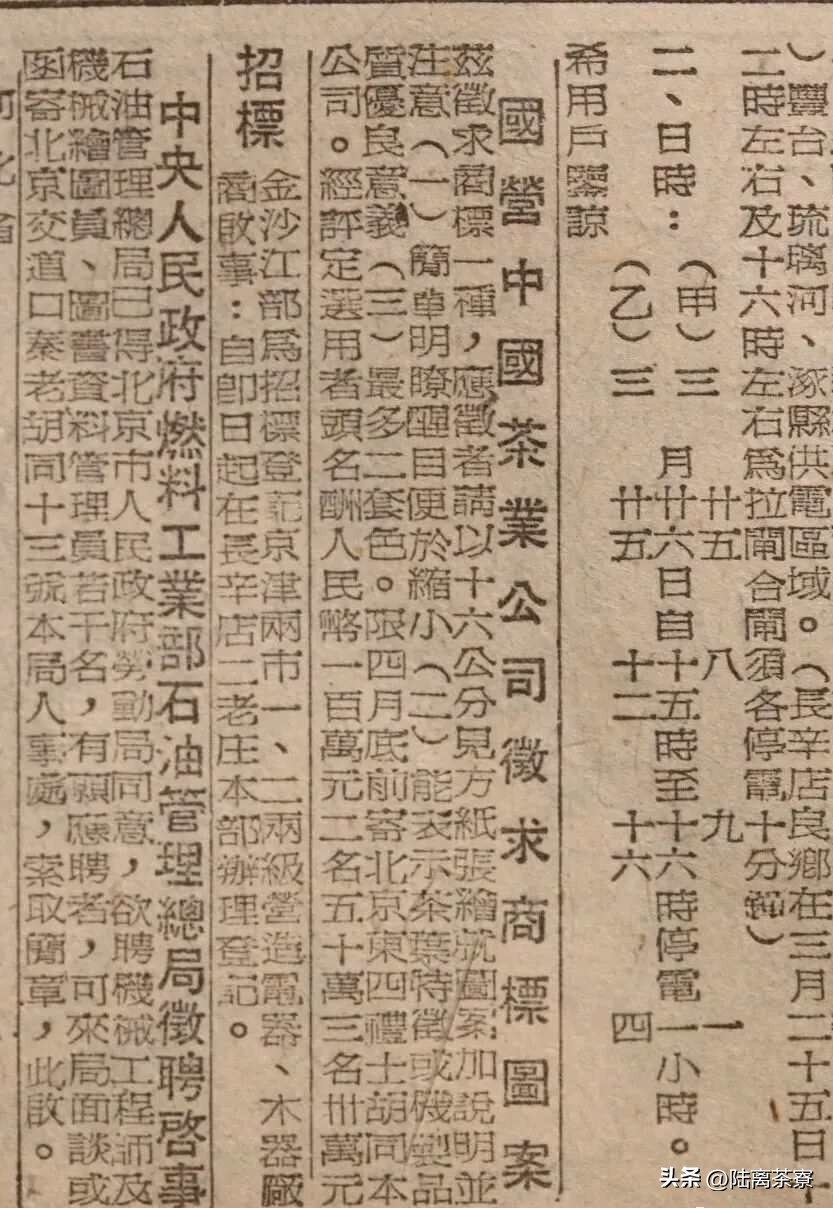 ）豐台、琉璃河、涿縣供電區域。（長辛店良鄉在三月二十五日十
二時左右及十六時左右爲拉閘合閘須各停電十分鐘）
二、日時：（甲）三月廿五日自八時至九時停電一小時。
（乙）三月廿六日自十五時至十六時停電一小時。
廿五 十二 十六 四
希用戶鑒諒
國營中國茶業公司徵求商標圖案
茲徵求商標一種，應徵者請以十六公分見方紙張繪就圖案加說明並
注意（一）簡單明瞭醒目便於縮小（二）能表示茶葉特徵或機製品
質優良意義（三）最多二套色。限四月底前寄北京東四禮士胡同本
公司。經評定選用者頭名酬人民幣一百萬元二名五十萬三名卅萬元
招標
金沙江部爲招標登記京津兩市一、二兩級營造電器、木器廠
商啟事：自卽日起在長辛店二老庄本部辦理登記。
中央人民政府燃料工業部石油管理總局徵聘啓事
石油管理總局已得北京市人民政府勞動局同意，欲聘機械工程師及
機械繪圖員、圖書資料管理員若干名，有願應聘者，可來局面談或
函寄北京交道口秦老胡同十三號本局人事處，索取簡章，此啟。
河北省
头条 @陆离茶寮